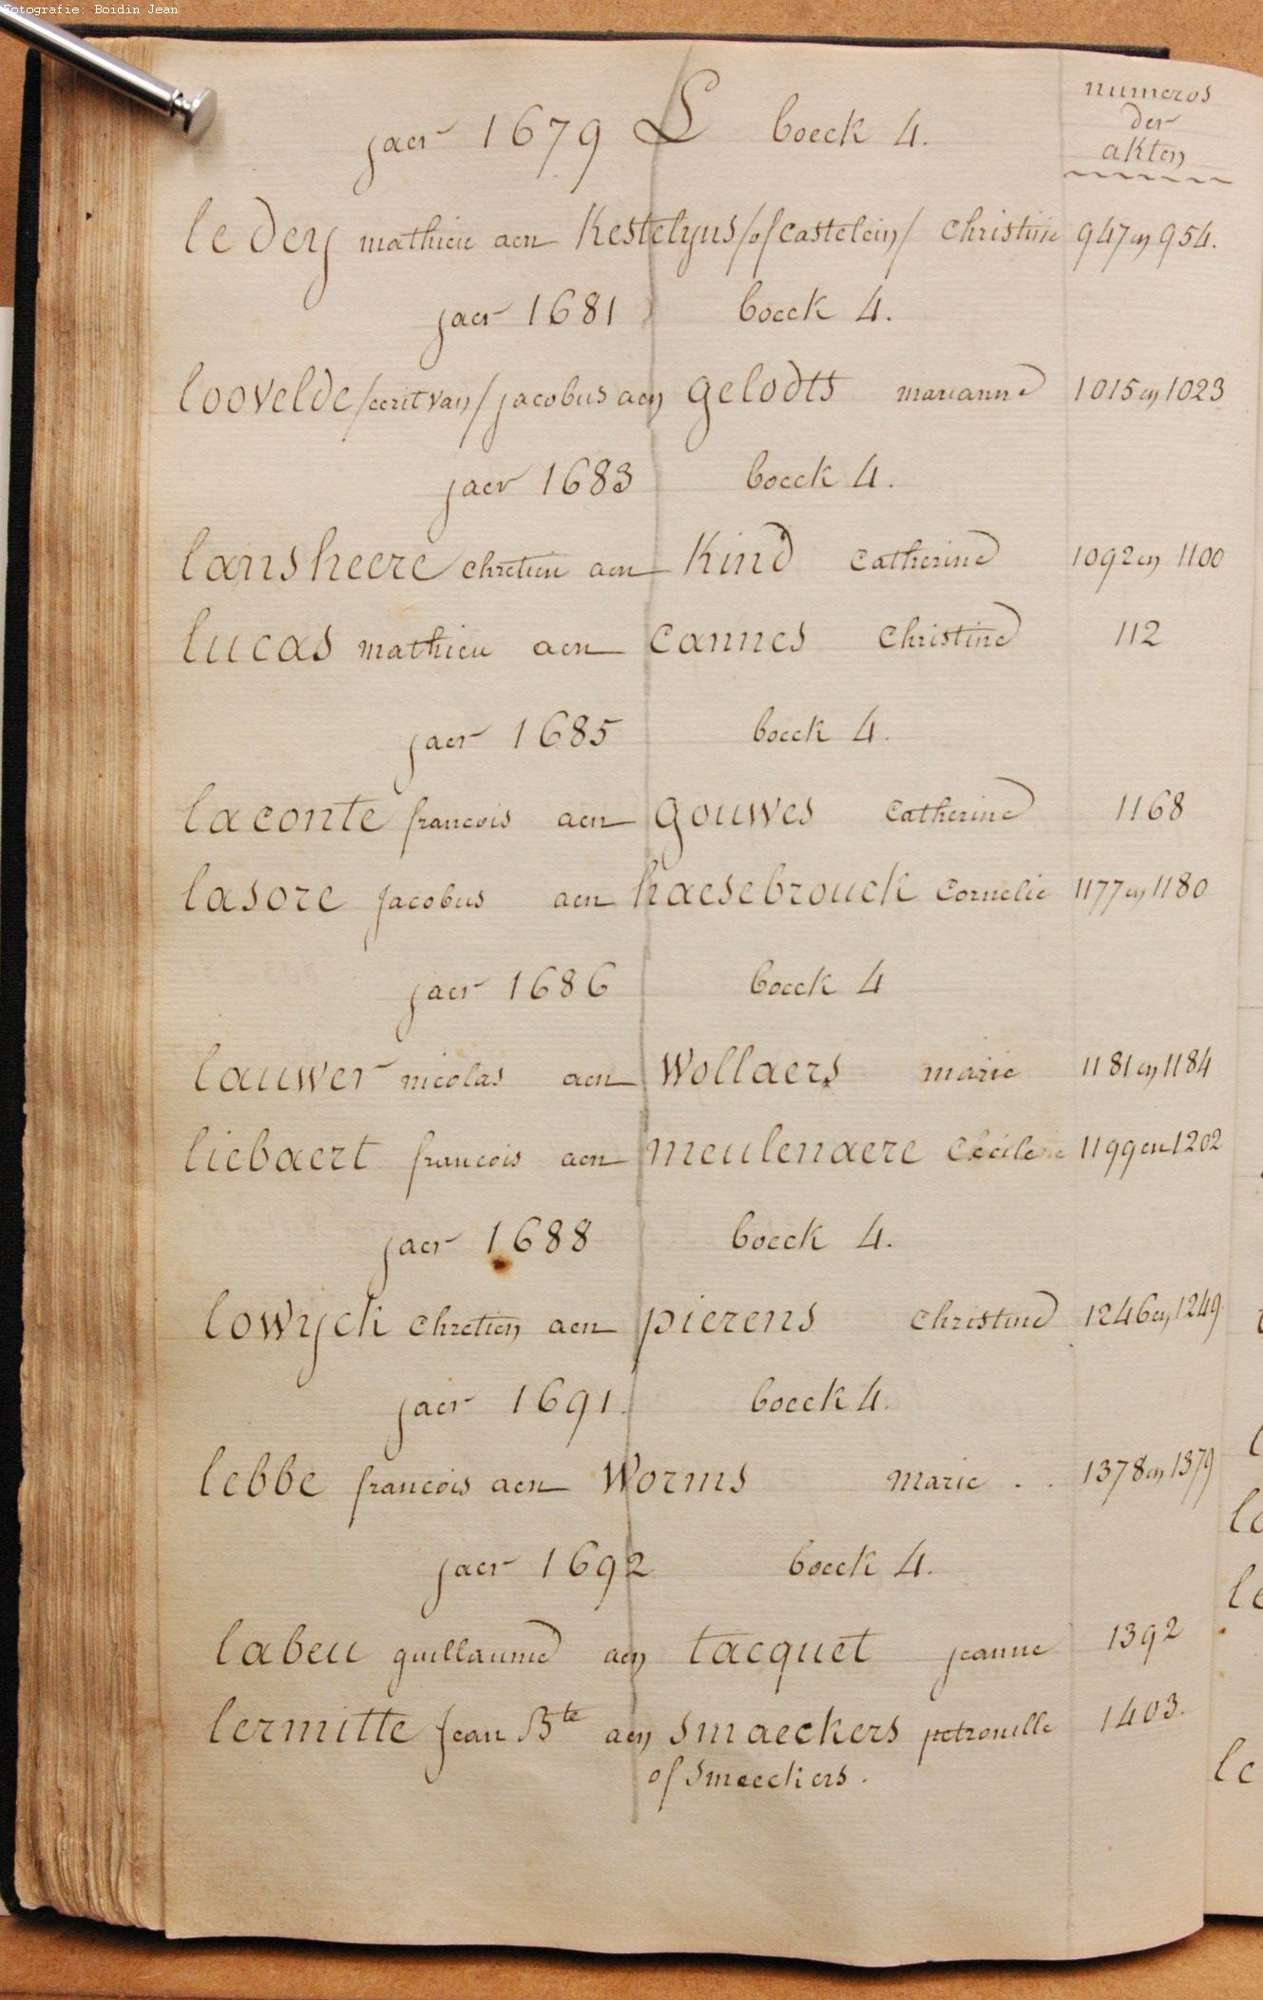 Fotografie: Boidin Jean
jaer 1679 L boeck 4.
numeros
der
akten
le Dey mathieu aen Kestelyns /of Castelein/ Christine 947 en 954.
jaer 1681 boeck 4.
loovelde /eerst van/ jacobus aen gelodts marianne 1015 en 1023
jaer 1683 boeck 4.
lansheere chretien aen Kind Catherine 1092 en 1100
lucas mathieu aen Cannes Christine 112
jaer 1685 boeck 4.
laconte francois aen gouwes Catherine 1168
lasore jacobus aen haesebrouck Cornelie 1177 en 1180
jaer 1686 boeck 4
lauwer nicolas aen Wollaers marie 1181 en 1184
liebaert francois aen meulenaere 1199 en 1202
jaer 1688 boeck 4.
lowyck chretien aen pierens christine 1246 en 1249.
jaer 1691. boeck 4.
lebbe francois aen Worms marie . . 1378 en 1379
jaer 1692 boeck 4.
labeu guillaume aen tacquet jeanne 1392
lermitte Jean Bte aen Smaeckers petronille 1403.
of Smeeckers.